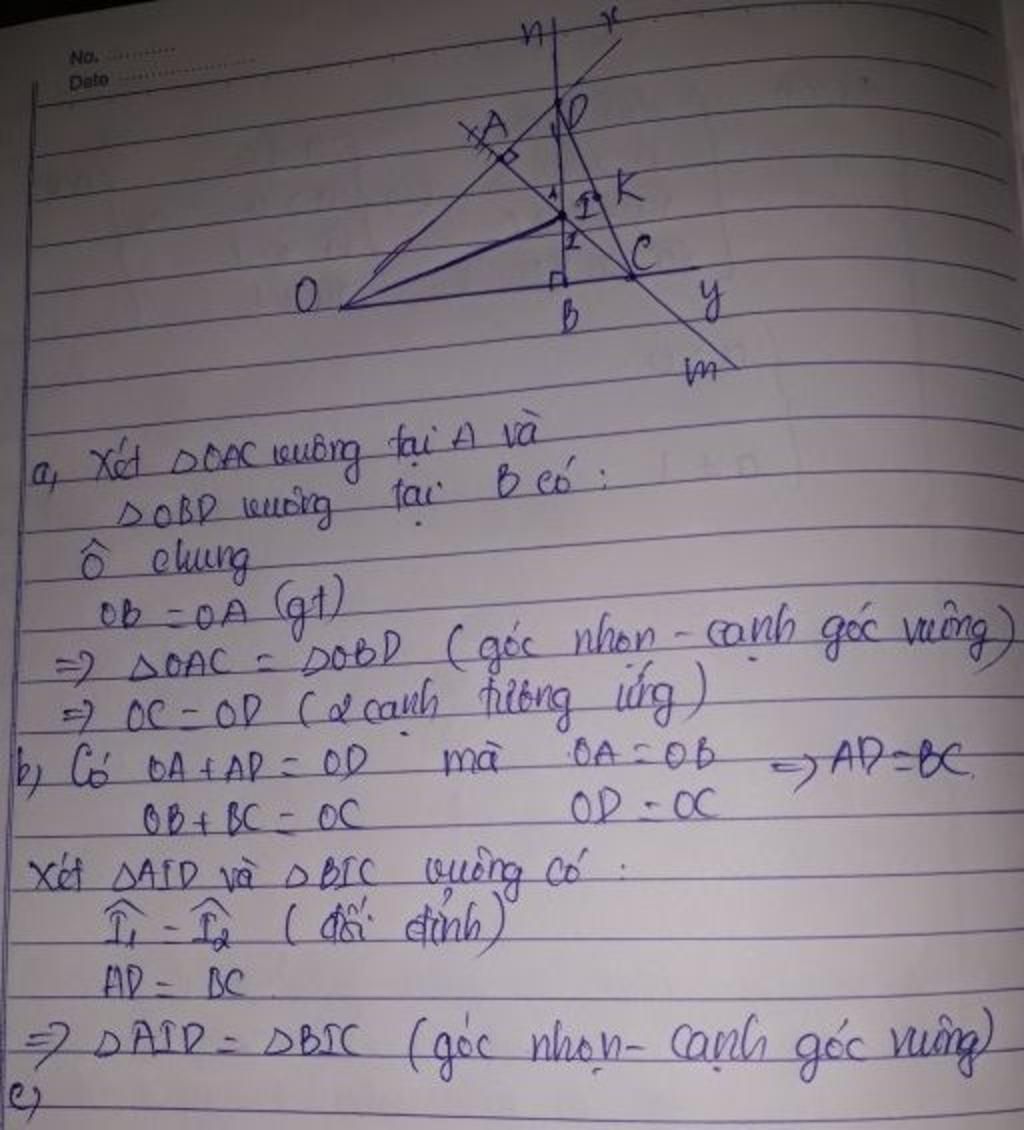 No. ............
Date ........................
n x
A D
K
I
1
2
O C
B y
m
a, Xét ΔOAC vuông tại A và
ΔOBD vuông tại B có :
Ô chung
OB = OA (gt)
=> ΔOAC = ΔOBD (góc nhọn - cạnh góc vuông)
=> OC = OD (2 cạnh tương ứng)
b, Có OA + AD = OD mà OA = OB => AD = BC
OB + BC = OC OD = OC
Xét ΔAID và ΔBIC vuông có :
Î₁ = Î₂ (đối đỉnh)
AD = BC
=> ΔAID = ΔBIC (góc nhọn - cạnh góc vuông)
c,